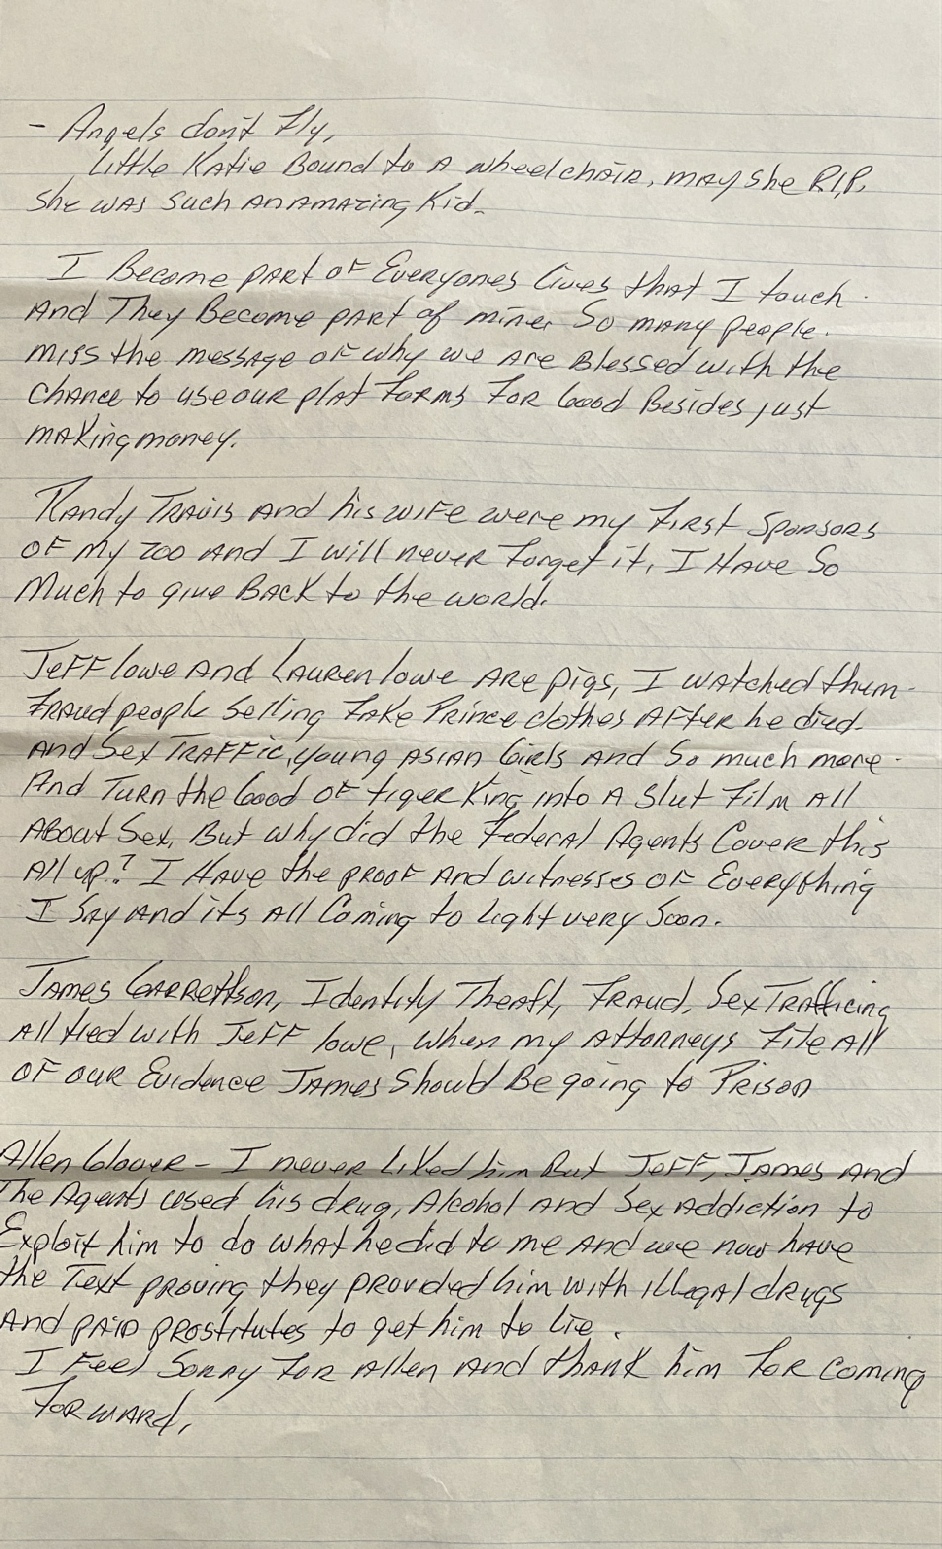 - Angels don't Fly,
Little Katie Bound to A wheelchair, may she R.I.P.
She was such an amazing Kid.
I Become part of Everyones lives that I touch.
And They Become part of mine. So many people.
miss the message of why we are Blessed with the
chance to use our plat forms For Good Besides just
making money.
Randy Travis and his wife were my First Sponsors
of my zoo and I will never Forget it. I Have So
Much to give Back to the world.
Jeff lowe And Lauren lowe Are pigs, I watched them
Fraud people selling Fake Prince clothes After he died.
And Sex Traffic, young Asian Girls and So much more
And Turn the Good of tiger King into A slut Film All
About Sex, But why did the Federal Agents Cover this
All up? I Have the proof And witnesses of Everything
I Say And its All Coming to light very Soon.
James Garrettson, Identity Theaft, Fraud, Sex Trafficing
All tied with Jeff lowe, when my Attorneys File All
of our Evidence James Should Be going to Prison
Allen Glover - I never liked him But Jeff, James and
The Agents used his drug, Alcohol and Sex Addiction to
Exploit him to do what he did to me and we now have
the Text proving they provded him with illegal drugs
And paid prostitutes to get him to lie.
I Feel Sorry For Allen and thank him For coming
Forward,